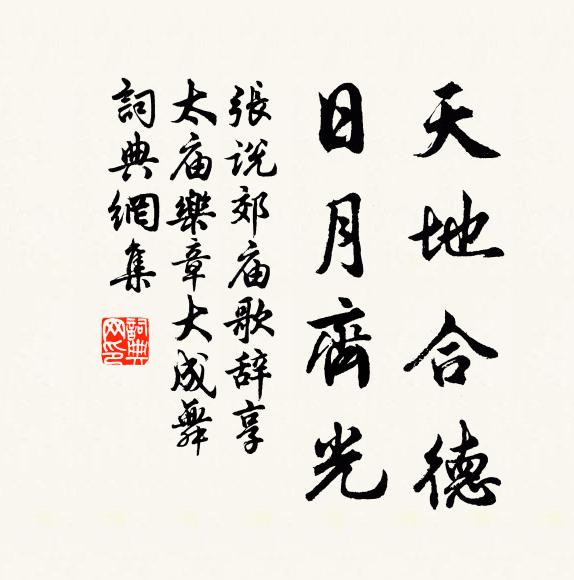 天地合德
日月齊光
張说郊庙歌辞享
太庙樂章大成舞
詞典網集
詞典
网印